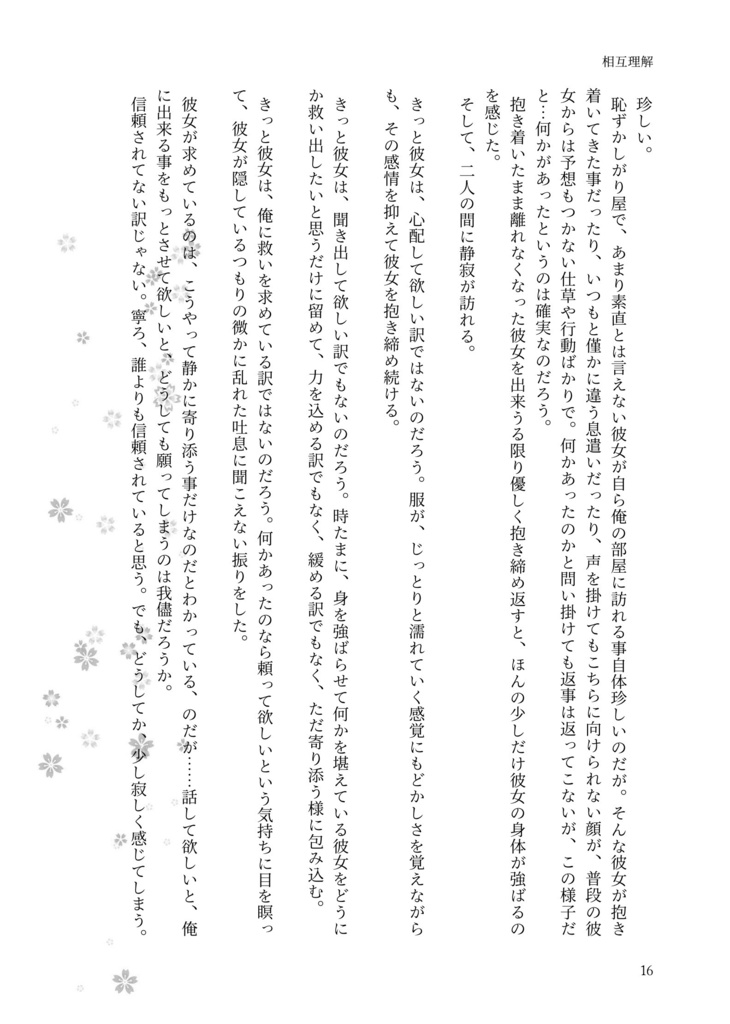 相互理解
珍しい。
恥ずかしがり屋で、あまり素直とは言えない彼女が自ら俺の部屋に訪れる事自体珍しいのだが。そんな彼女が抱き
着いてきた事だったり、いつもと僅かに違う息遣いだったり、声を掛けてもこちらに向けられない顔が、普段の彼
女からは予想もつかない仕草や行動ばかりで。何かあったのかと問い掛けても返事は返ってこないが、この様子だ
と…何かがあったというのは確実なのだろう。
抱き着いたまま離れなくなった彼女を出来うる限り優しく抱き締め返すと、ほんの少しだけ彼女の身体が強ばるの
を感じた。
そして、二人の間に静寂が訪れる。
きっと彼女は、心配して欲しい訳ではないのだろう。服が、じっとりと濡れていく感覚にもどかしさを覚えながら
も、その感情を抑えて彼女を抱き締め続ける。
きっと彼女は、聞き出して欲しい訳でもないのだろう。時たまに、身を強ばらせて何かを堪えている彼女をどうに
か救い出したいと思うだけに留めて、力を込める訳でもなく、緩める訳でもなく、ただ寄り添う様に包み込む。
きっと彼女は、俺に救いを求めている訳ではないのだろう。何かあったのなら頼って欲しいという気持ちに目を瞑っ
て、彼女が隠しているつもりの微かに乱れた吐息に聞こえない振りをした。
彼女が求めているのは、こうやって静かに寄り添う事だけなのだとわかっている、のだが……話して欲しいと、俺
に出来る事をもっとさせて欲しいと、どうしても願ってしまうのは我儘だろうか。
信頼されてない訳じゃない。寧ろ、誰よりも信頼されていると思う。でも、どうしてか、少し寂しく感じてしまう。
16